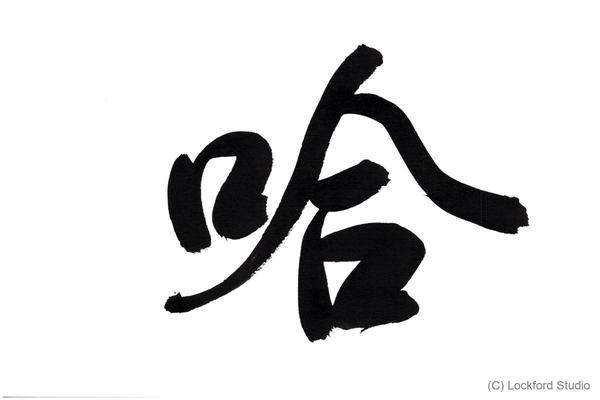 哈
(C) Lockford Studio